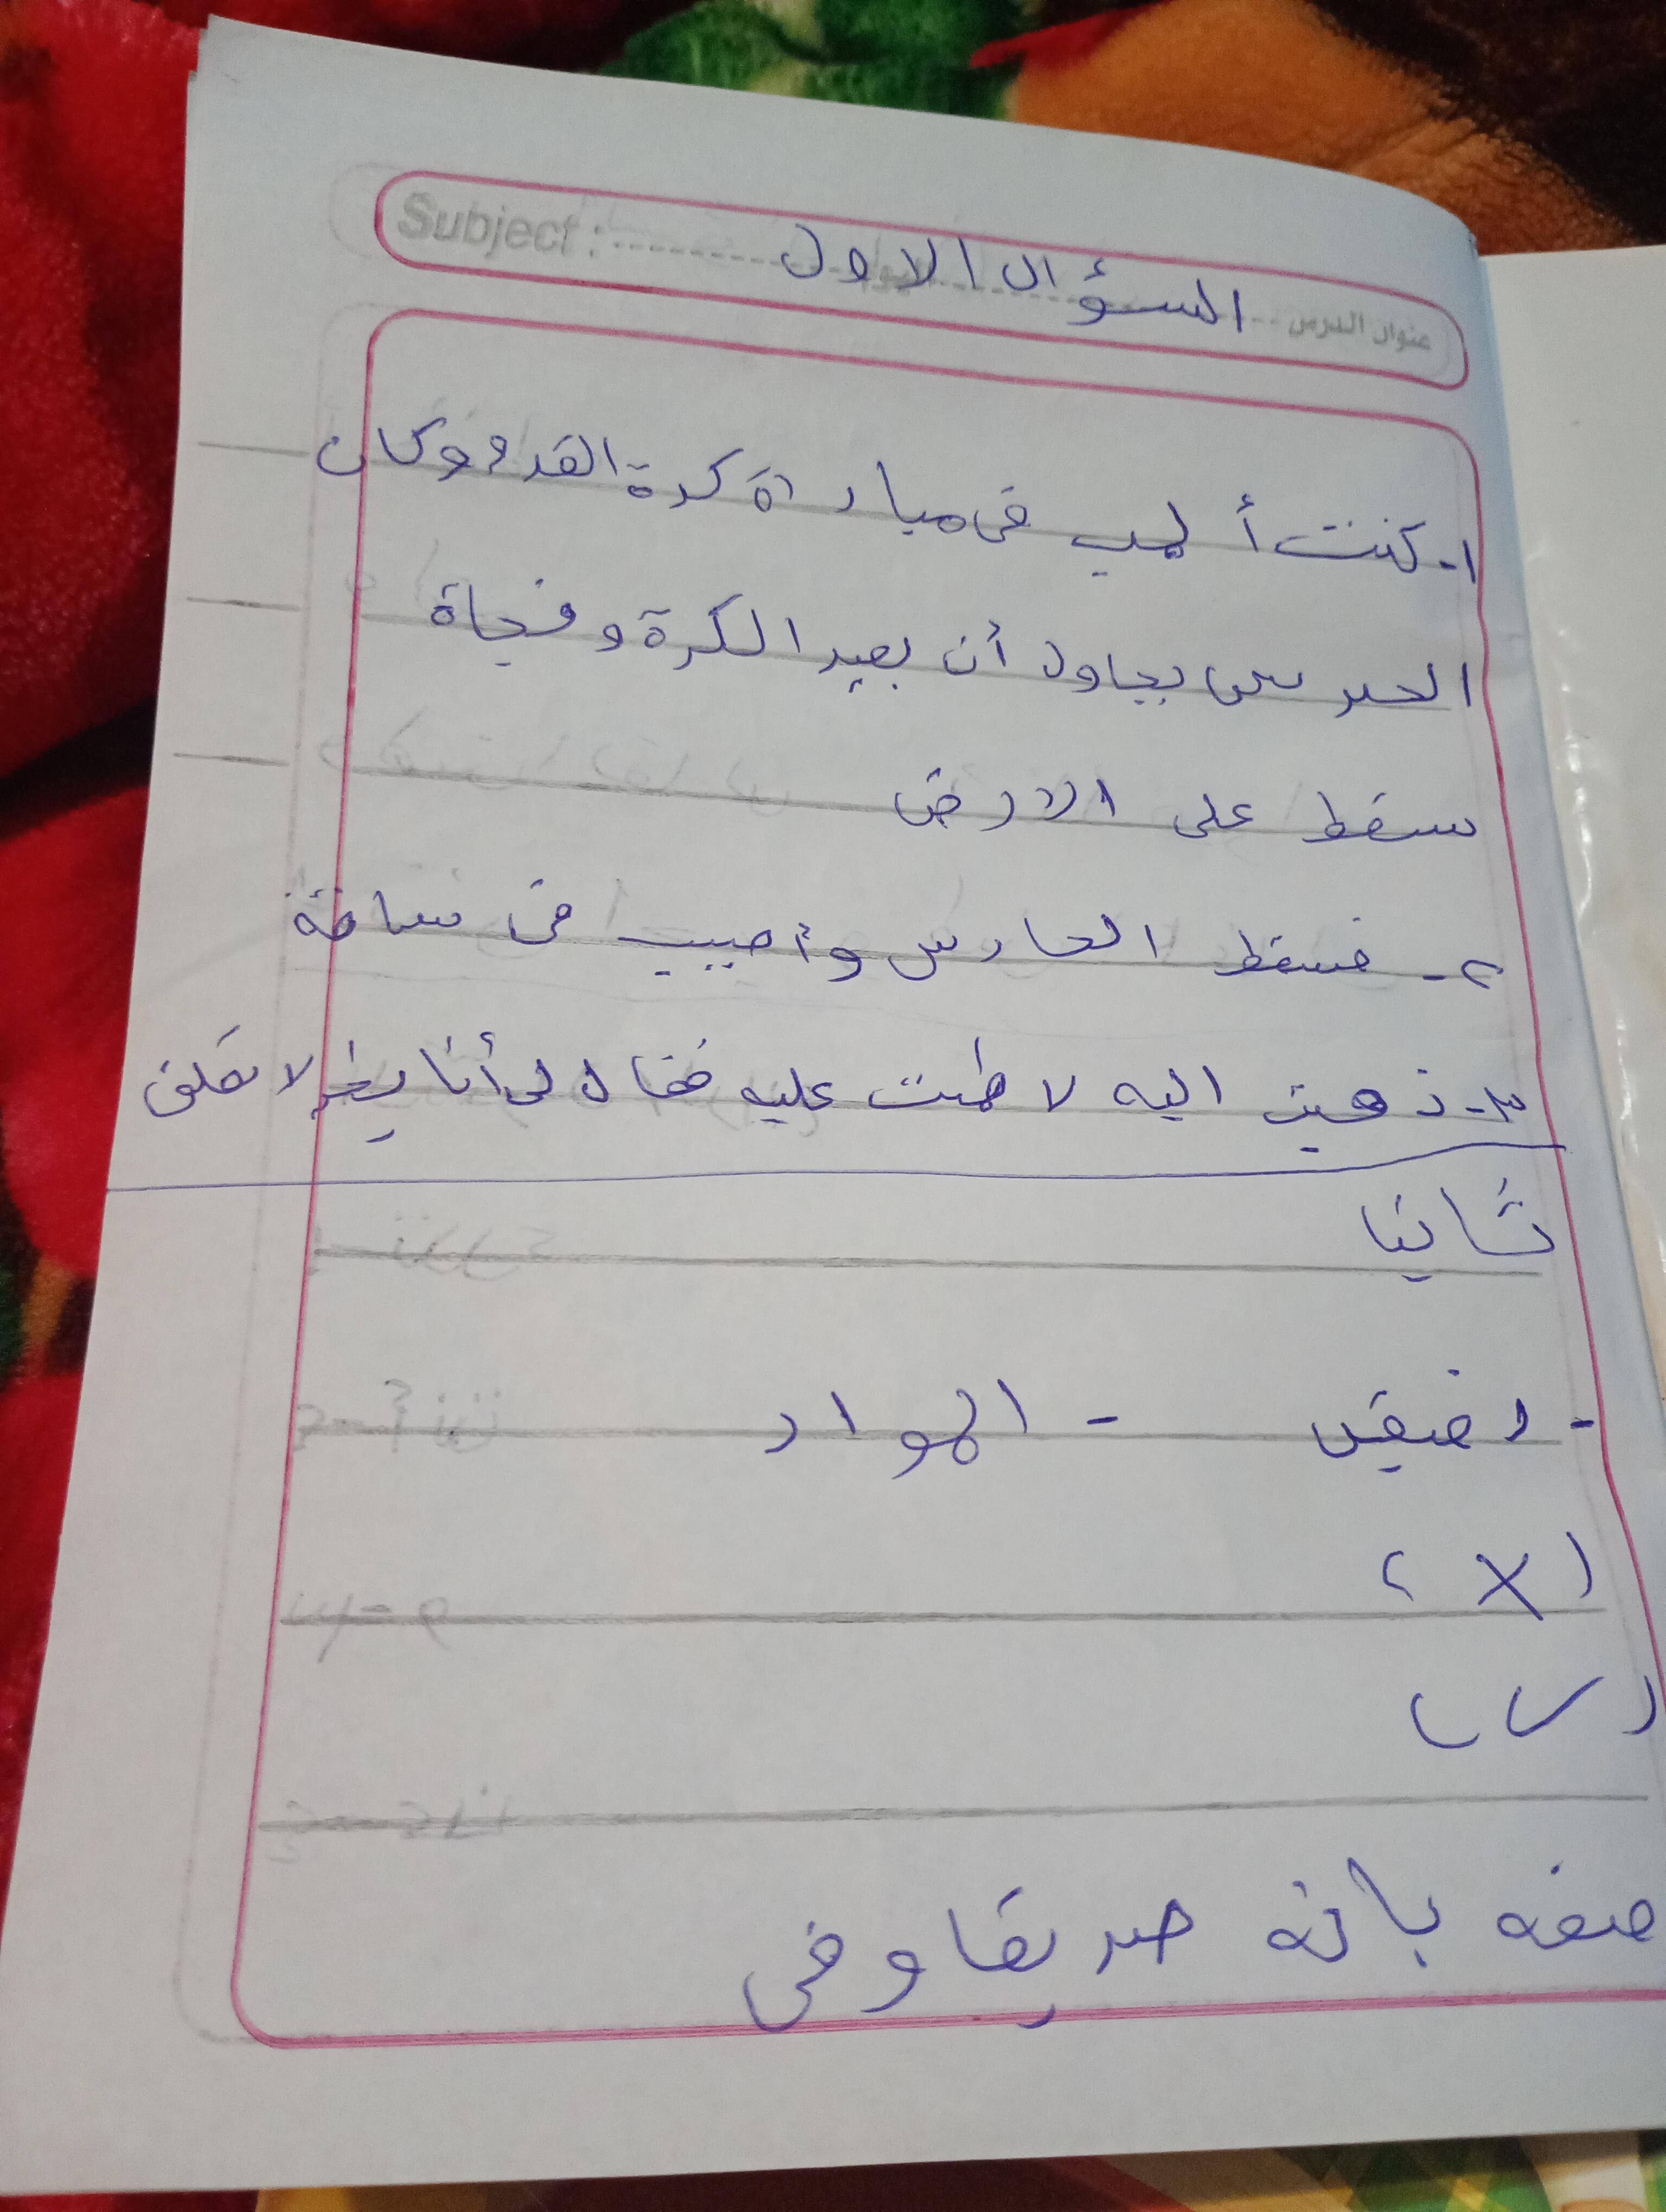 Subject : السؤال الاول عنوان الدرس
١- كنت ألعب فى مباراة كرة القدم وكان
الحرس يحاول أن بصد الكرة وفجاة
سقط على الارض
٢- فسقط الحارس وأصيب فى ساقة
٣- ذهبت اليه لا طمت عليه فقال لى أنا بخير لا تقلق
ثانيا
- رفيقى - المواد
(X)
(✓)
صفه بانه صديقا وفى